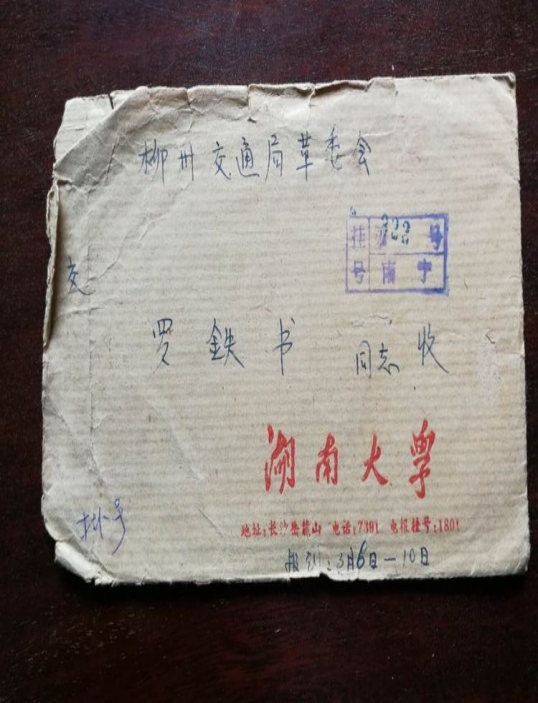 柳州交通局革委会
挂号 322号
南宁
交
罗鉄书 同志 收
湖南大學
挂号
地址:长沙岳麓山 电话:7381 电报挂号:1801
3月6日—10日